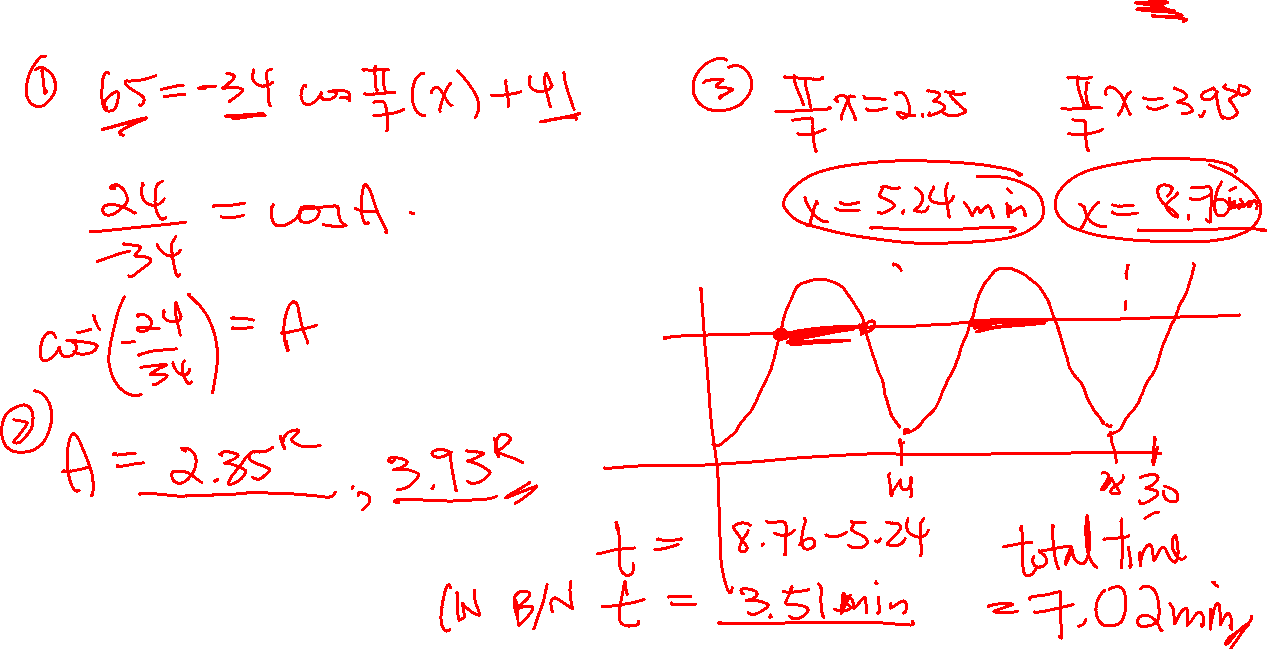 ① 65 = -34 cos π/7 (x) + 41
24/-34 = cos A.
cos⁻¹(-24/34) = A
② A = 2.35ᴿ, 3.93ᴿ
③ π/7 x = 2.35 π/7 x = 3.93°
x = 5.24 min x = 8.76 min
14 28 30
t = 8.76 - 5.24
IN B/N t = 3.51 min
total time
= 7.02 min